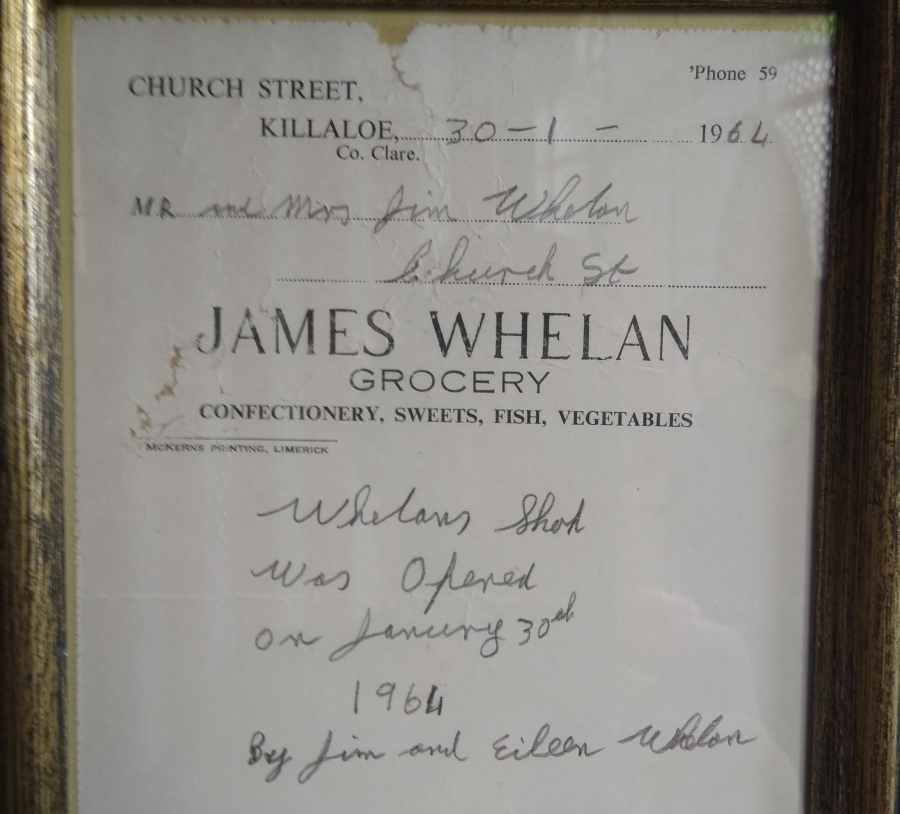 'Phone 59
CHURCH STREET,
KILLALOE, 30 - 1 - 1964
Co. Clare.
MR and Mrs Jim Whelan
Church St
JAMES WHELAN
GROCERY
CONFECTIONERY, SWEETS, FISH, VEGETABLES
MCKERNS PRINTING, LIMERICK
Whelans Shop
Was Opened
on Janury 30th
1964
By Jim and Eileen Whelan